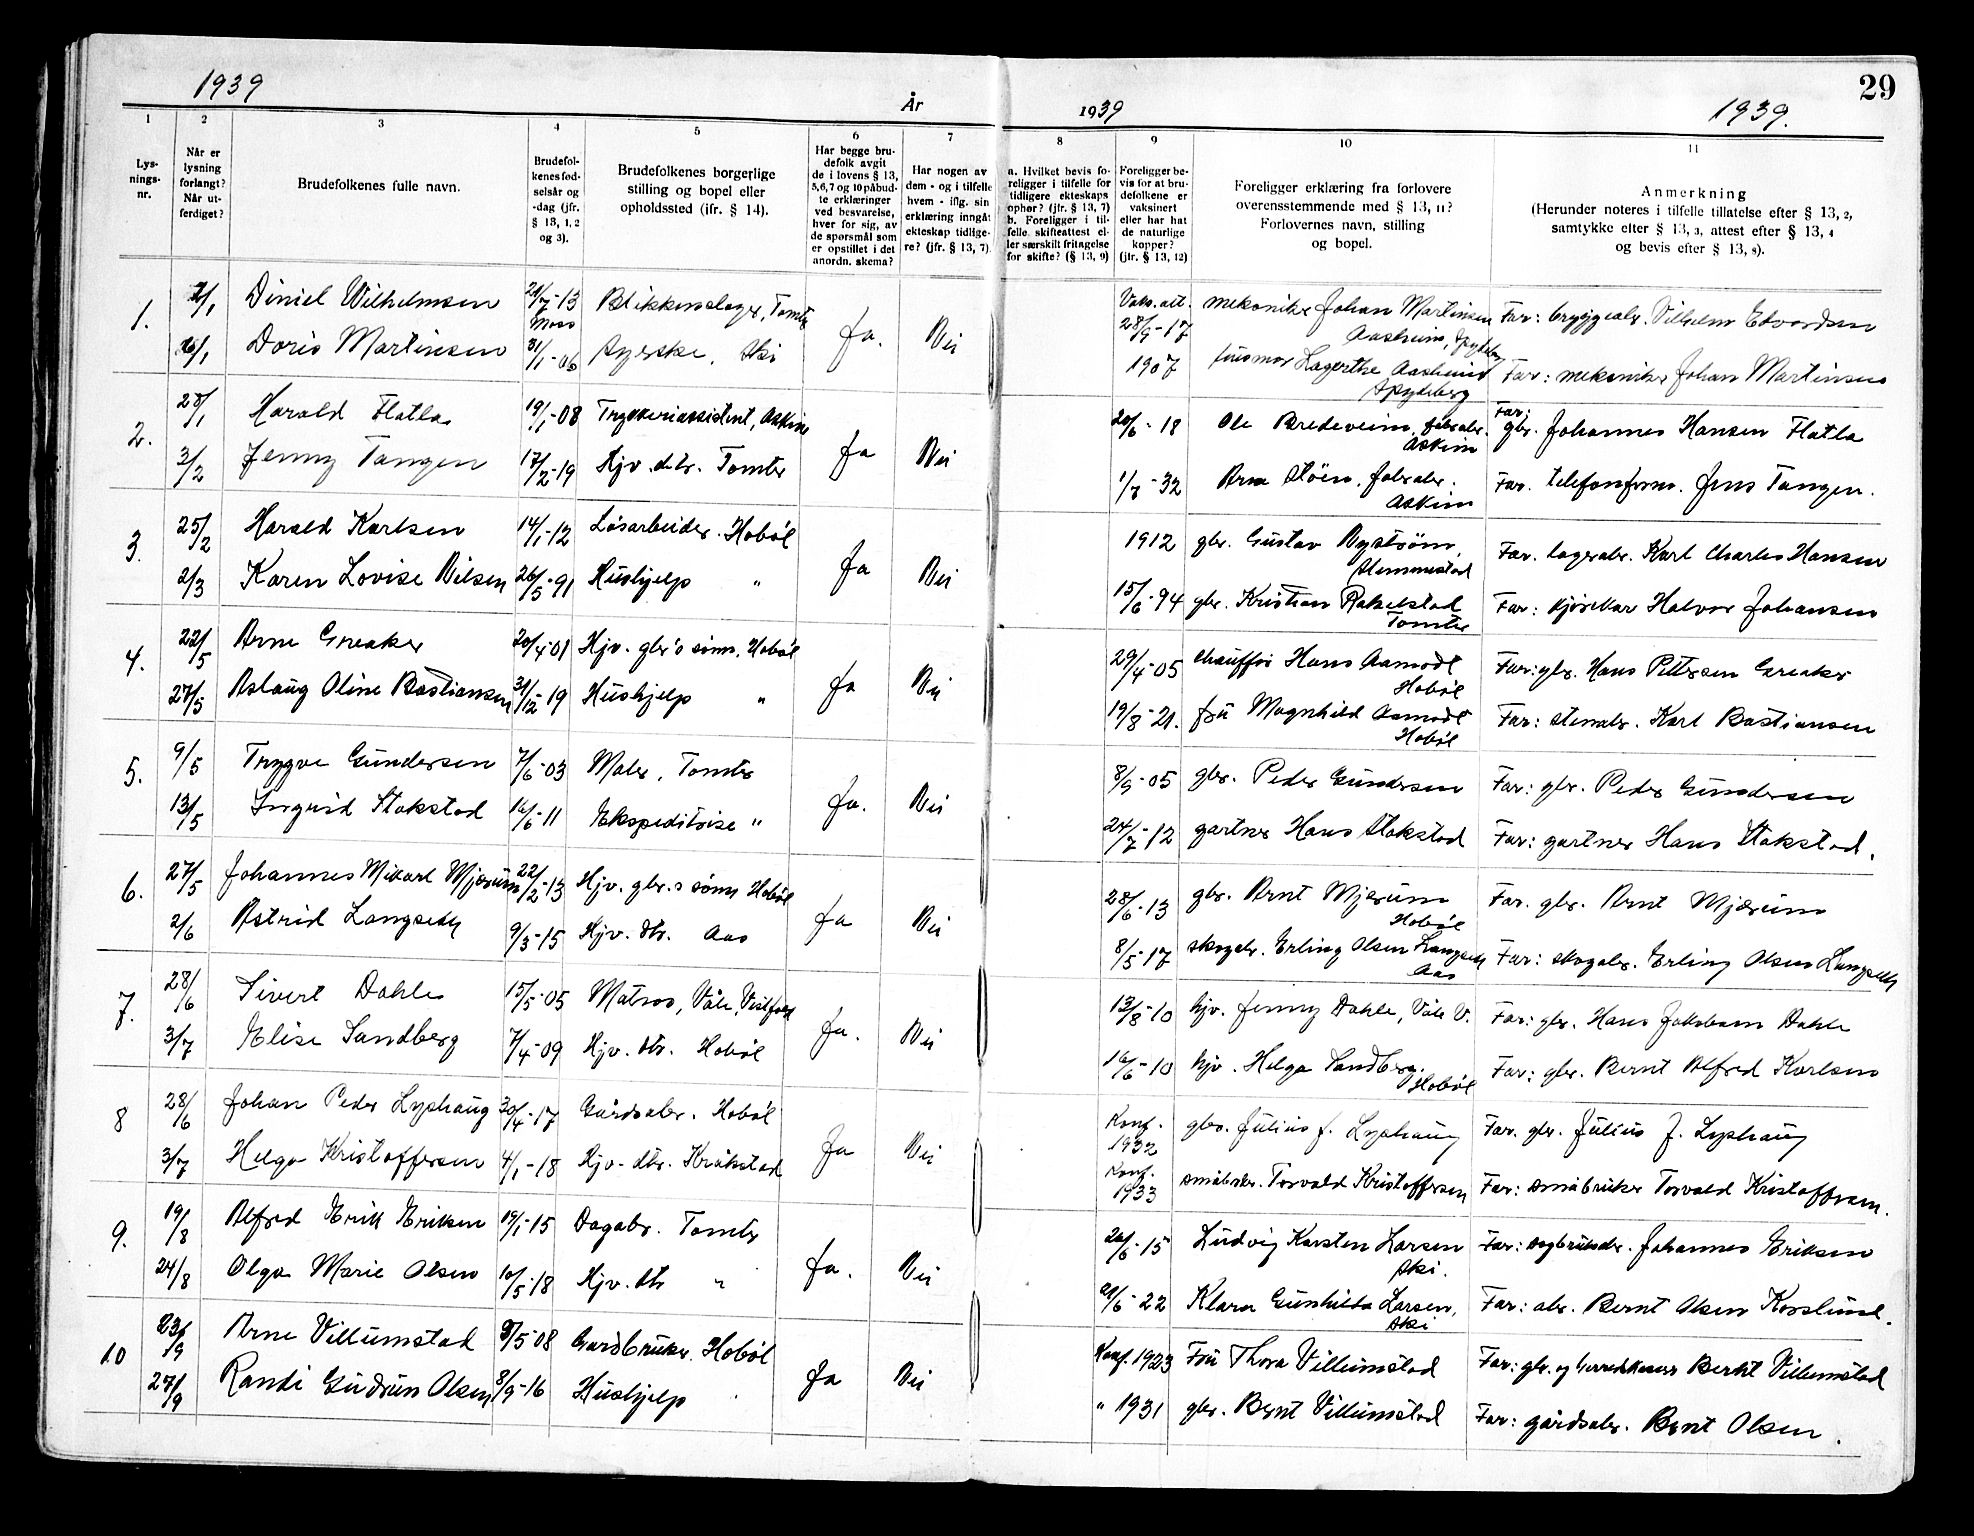 1939
År
1939
1939.
29
1
2
3
4
5
6
7
8
9
10
11
Lys-
nings-
nr.
Når er
lysning
forlangt?
Når ut-
ferdiget?
Brudefolkenes fulle navn.
Brudefol-
kenes fød-
selsår og
-dag (jfr.
§ 13, 1, 2
og 3).
Brudefolkenes borgerlige
stilling og bopel eller
opholdssted (ifr. § 14).
Har begge bru-
defolk avgit
de i lovens § 13,
5, 6, 7 og 10 påbud-
te erklæringer
ved besvarelse,
hver for sig, av
de spørsmål som
er opstillet i det
anordn. skema?
Har nogen av
dem - og i tilfelle
hvem - iflg. sin
erklæring inngåt
ekteskap tidlige-
re? (jfr. § 13, 7).
a. Hvilket bevis fo-
religger i tilfelle for
tidligere ekteskaps
ophør? (jfr. § 13, 7)
b. Foreligger i til-
felle skifteattest el-
ler særskilt fritagelse
for skifte? (§ 13, 9)
Foreligger be-
vis for at bru-
defolkene er
vaksinert
eller har hat
de naturlige
kopper?
(jfr. § 13, 12)
Foreligger erklæring fra forlovere
overensstemmende med § 13, 11?
Forlovernes navn, stilling
og bopel.
Anmerkning
(Herunder noteres i tilfelle tillatelse efter § 13, 2,
samtykke efter § 13, 3, attest efter § 13, 4
og bevis efter § 13, 8).
1. 2/1 Diniel Wilhelmsen 21/7-13 Moss Blikkenslager, Tomter Ja. Nei Vaks.att. 28/9-17 mekaniker Johan Martinsen Aasheim, Spydeberg Far: bryggearb. Vilhelm Edvardsen
26/1 Doris Martinsen 31/1-06 Syerske, Ski 1907 husmor Lagerthe Aasheim Spydeberg Far: mekaniker Johan Martinsen
2. 28/1 Harald Flatla 19/1-08 Trykkeriassistent, Askim Ja Nei 20/6-18 Ole Bredeveien, fabrarb. Askim Far: gbr. Johannes Hansen Flatla
3/2 Jenny Tangen 17/2-19 Hjv. dtr. Tomter 1/7-32 Arne Støen, fabrarb. Askim Far. telefonform. Jens Tangen.
3. 25/2 Harald Karlsen 14/1-12 Løsarbeider. Hobøl Ja Nei 1912 gbr. Gustav Nystrøm, Slemmestad Far. lagerarb. Karl Charles Hansen
2/3 Karen Lovise Nilsen 26/5-91 Hushjelp " 15/6-94 gbr. Kristian Rakelstad Tomter Far: kjørekar Halvor Johansen
4. 22/5 Arne Greaker 20/4-01 Hjv. gbr's sønn, Hobøl Ja Nei 29/4-05 chauffør Hans Aamodt Hobøl Far: gbr. Hans Pettersen Greaker
27/5 Aslaug Oline Bastiansen 31/12-19 Hushjelp " 19/8-21. fru Magnhild Aamodt Hobøl Far: stenarb. Karl Bastiansen
5. 9/5 Trygve Gundersen 7/6-03 Maler, Tomter Ja. Nei 8/9-05 gbr. Peder Gundersen Far: gbr. Peder Gundersen
13/5 Ingrid Stokstad 16/6-11 Ekspeditrise " 24/7-12 gartner Hans Stokstad Far: gartner Hans Stokstad.
6. 27/5 Johannes Mikael Mjærum 22/2-13 Hjv. gbr.s sønn Hobøl Ja Nei 28/6-13 gbr. Arnt Mjærum Hobøl Far. gbr. Arnt Mjærum
2/6 Astrid Langseth 9/3-15 Hjv. dtr. Aas 8/5-17 skogarb. Erling Olsen Langseth Aas Far: skogarb. Erling Olsen Langseth
7. 28/6 Sivert Dahle 15/5-05 Matros, Våle, Vestfold Ja. Nei 13/8-10 hjv. Jenny Dahle, Våle V. Far: gbr. Hans Jakobsen Dahle
3/7 Elise Sandberg 7/4-09 Hjv. dtr. Hobøl 16/6-10 hjv. Helga Sandberg. Hobøl Far: gbr. Bernt Alfred Karlsen
8 28/6 Johan Peder Lyshaug 30/4-17 Gårdsarb. Hobøl Ja Nei Konf. 1932 gbr. Julius J. Lyshaug Far. gbr. Julius J. Lyshaug
3/7 Helga Kristoffersen 4/1-18 Hjv. dtr. Kråkstad Konf. 1933 småbrker. Torvald Kristoffersen Far: småbruker Torvald Kristoffersen.
9. 19/8 Alfred Erik Eriksen 19/1-15 Dagarb. Tomter Ja. Nei 26/6-15 Ludvig Karsten Larsen Ski. Far: Johannes Eriksen
24/8 Olga Marie Olsen 10/5-18 Hjv. dtr " 21/6-22 Klara Gunhilda Larsen, Ski Far: arb. Bernt Olsen Korslund.
10 23/9 Arne Villumstad 5-08 Gardbruker, Hobøl Ja Nei Konf. 1923 Fru Thora Villumstad Far: gbr. og herredskasser Berthel Villumstad
27/9 Randi Gudrun Olsen 8/9-16 Hushjelp " 1931 gbr. Bernt Villumstad Far: gårdsarb. Bernt Olsen.